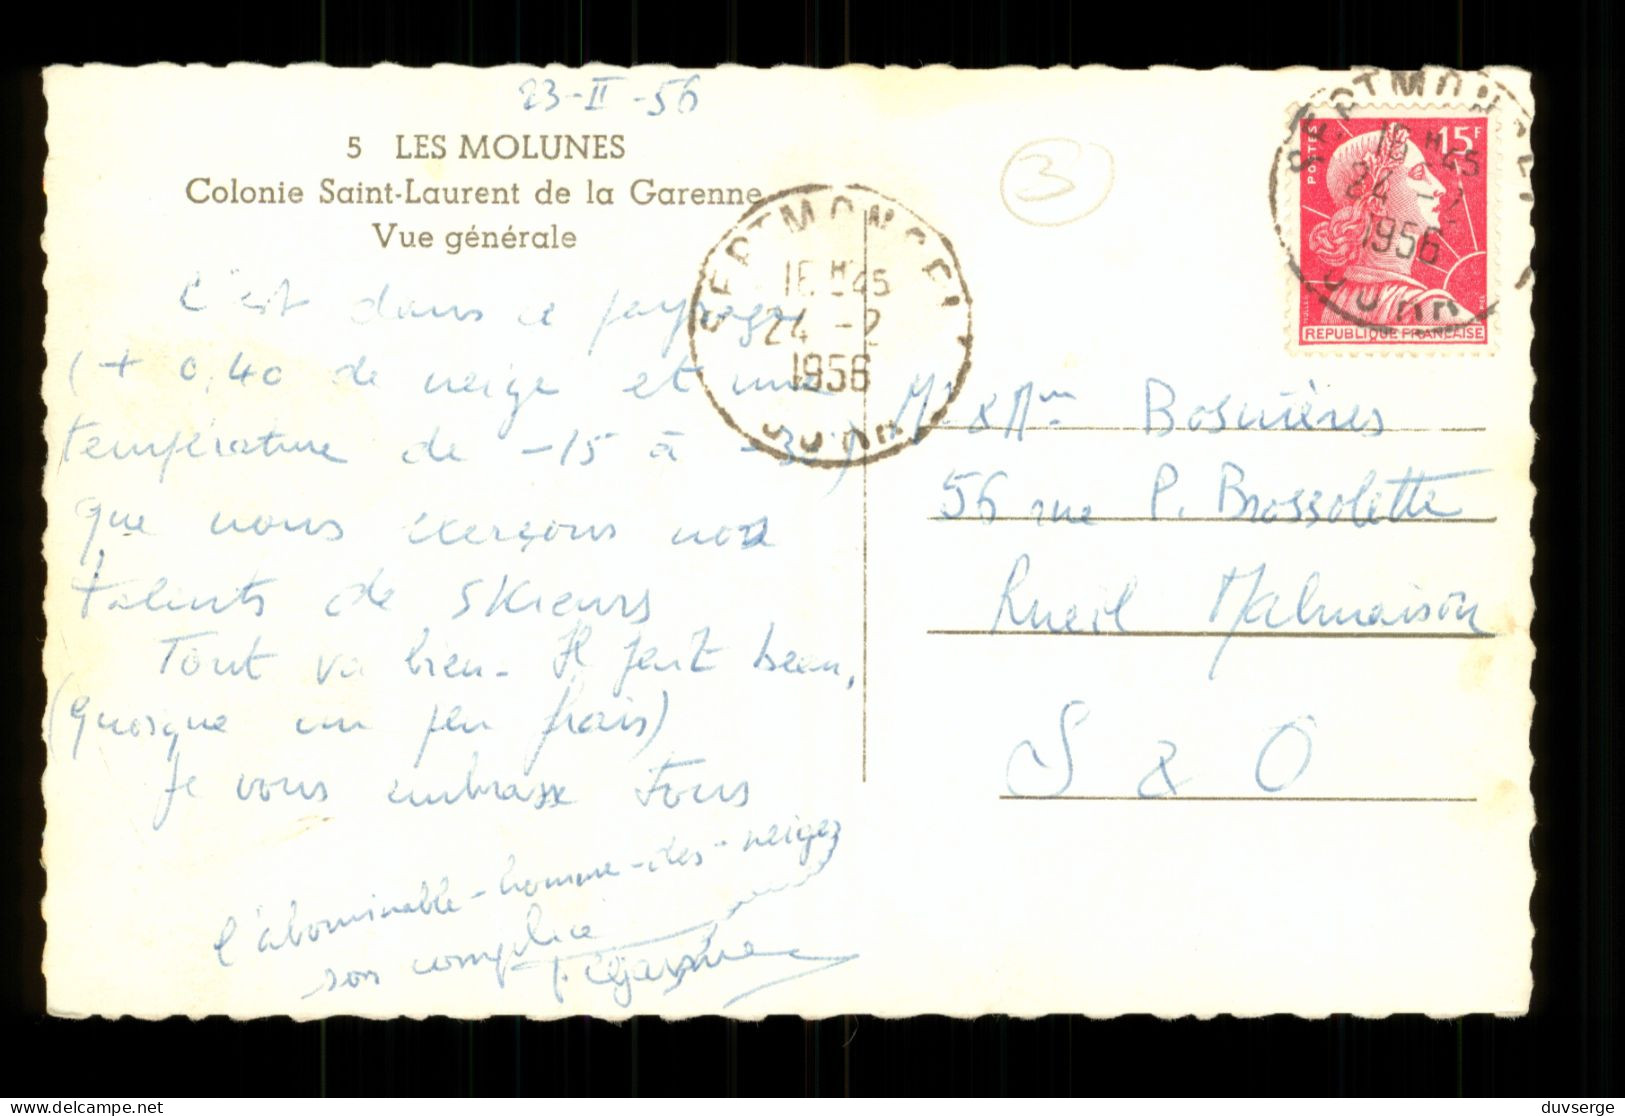 23-II-56
5 LES MOLUNES
Colonie Saint-Laurent de la Garenne
Vue générale
C'est dans ce paysage
(+ 0,40 de neige et une
température de -15 à -30)
que nous exerçons nos
talents de skieurs
Tout va bien. Il fait beau,
(quoique un peu frais)
Je vous embrasse tous
l'abominable-homme-des-neiges
son complice
SEPTMONCEL
16 H 45
24 -2
1956
JURA
③
POSTES
15F
REPUBLIQUE FRANÇAISE
SEPTMONCEL
16 H 45
24 -2
1956
JURA
Mr & Mme
56 rue P. Brossolette
Rueil Malmaison
S & O
duvserge